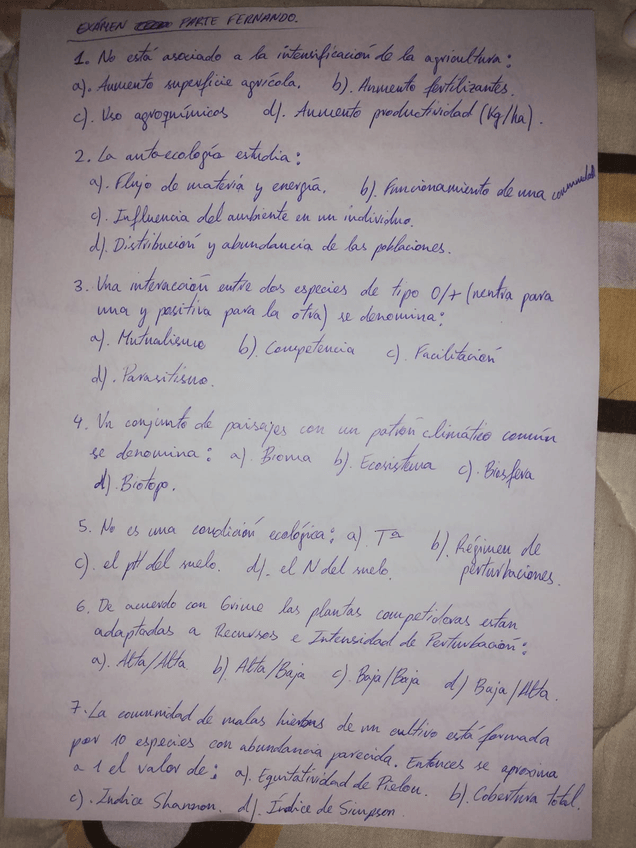 EXÁMEN PARTE FERNANDO.
1. No está asociado a la intensificación de la agricultura:
a). Aumento superficie agrícola. b). Aumento fertilizantes.
c). Uso agroquímicos d). Aumento productividad (Kg/ha).
2. La autoecología estudia:
a). Flujo de materia y energía. b). Funcionamiento de una comunidad
c). Influencia del ambiente en un individuo.
d). Distribución y abundancia de las poblaciones.
3. Una interacción entre dos especies de tipo 0/+ (neutra para
una y positiva para la otra) se denomina:
a). Mutualismo b). Competencia c). Facilitación
d). Parasitismo.
4. Un conjunto de paisajes con un patrón climático común
se denomina: a). Bioma b). Ecosistema c). Biosfera
d). Biotopo.
5. No es una condición ecológica: a). Tª b). Régimen de
c). el pH del suelo. d). el N del suelo. perturbaciones.
6. De acuerdo con Grime las plantas competidoras estan
adaptadas a Recursos e Intensidad de Perturbación:
a). Alta/Alta b) Alta/Baja c) Baja/Baja d) Baja/Alta.
7. La comunidad de malas hierbas de un cultivo está formada
por 10 especies con abundancia parecida. Entonces se aproxima
a 1 el valor de: a). Equitatividad de Pielou. b). Cobertura total.
c). Indice Shannon. d). Índice de Simpson